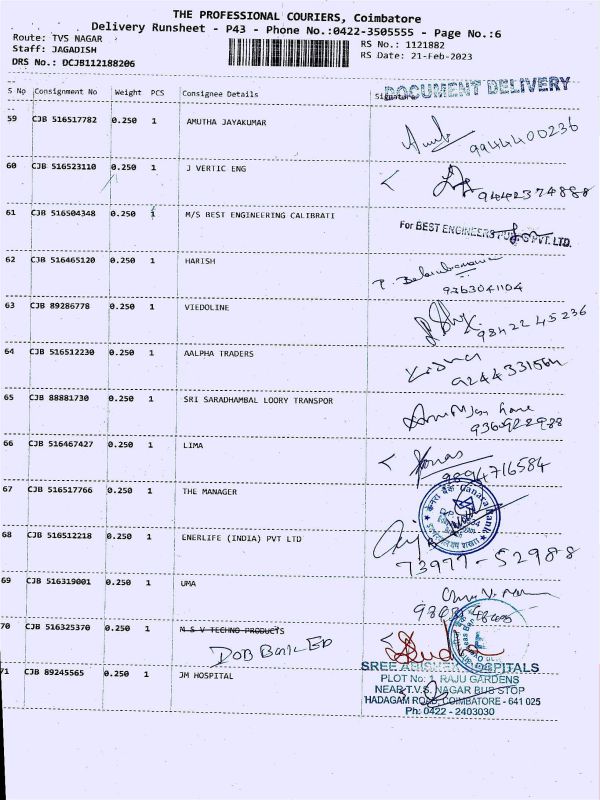 THE PROFESSIONAL COURIERS, Coimbatore
Delivery Runsheet - P43 - Phone No.:0422-3505555 - Page No.:6
Route: TVS NAGAR
Staff: JAGADISH
DRS No.: DCJB112188206
RS No.: 1121882
RS Date: 21-Feb-2023
DOCUMENT DELIVERY
S No Consignment No Weight PCS Consignee Details Signature
59 CJB 516517782 0.250 1 AMUTHA JAYAKUMAR
9944400236
60 CJB 516523110 0.250 1 J VERTIC ENG
9442374888
61 CJB 516504348 0.250 1 M/S BEST ENGINEERING CALIBRATI
For BEST ENGINEERS PVT. LTD.
62 CJB 516465120 0.250 1 HARISH
9363041104
63 CJB 89286778 0.250 1 VIEDOLINE
98422 45236
64 CJB 516512230 0.250 1 AALPHA TRADERS
9244331564
65 CJB 88881730 0.250 1 SRI SARADHAMBAL LOORY TRANSPOR
9360922988
66 CJB 516467427 0.250 1 LIMA
9894716584
67 CJB 516517766 0.250 1 THE MANAGER
Canara Bank
68 CJB 516512218 0.250 1 ENERLIFE (INDIA) PVT LTD
73977-52988
69 CJB 516319001 0.250 1 UMA
70 CJB 516325370 0.250 1 M S V TECHNO PRODUCTS
71 CJB 89245565 0.250 1 JM HOSPITAL
SREE ABISHEK HOSPITALS
PLOT No: 1, RAJU GARDENS
NEAR T.V.S. NAGAR BUS STOP
HADAGAM ROAD, COIMBATORE - 641 025
Ph: 0422 - 2403030